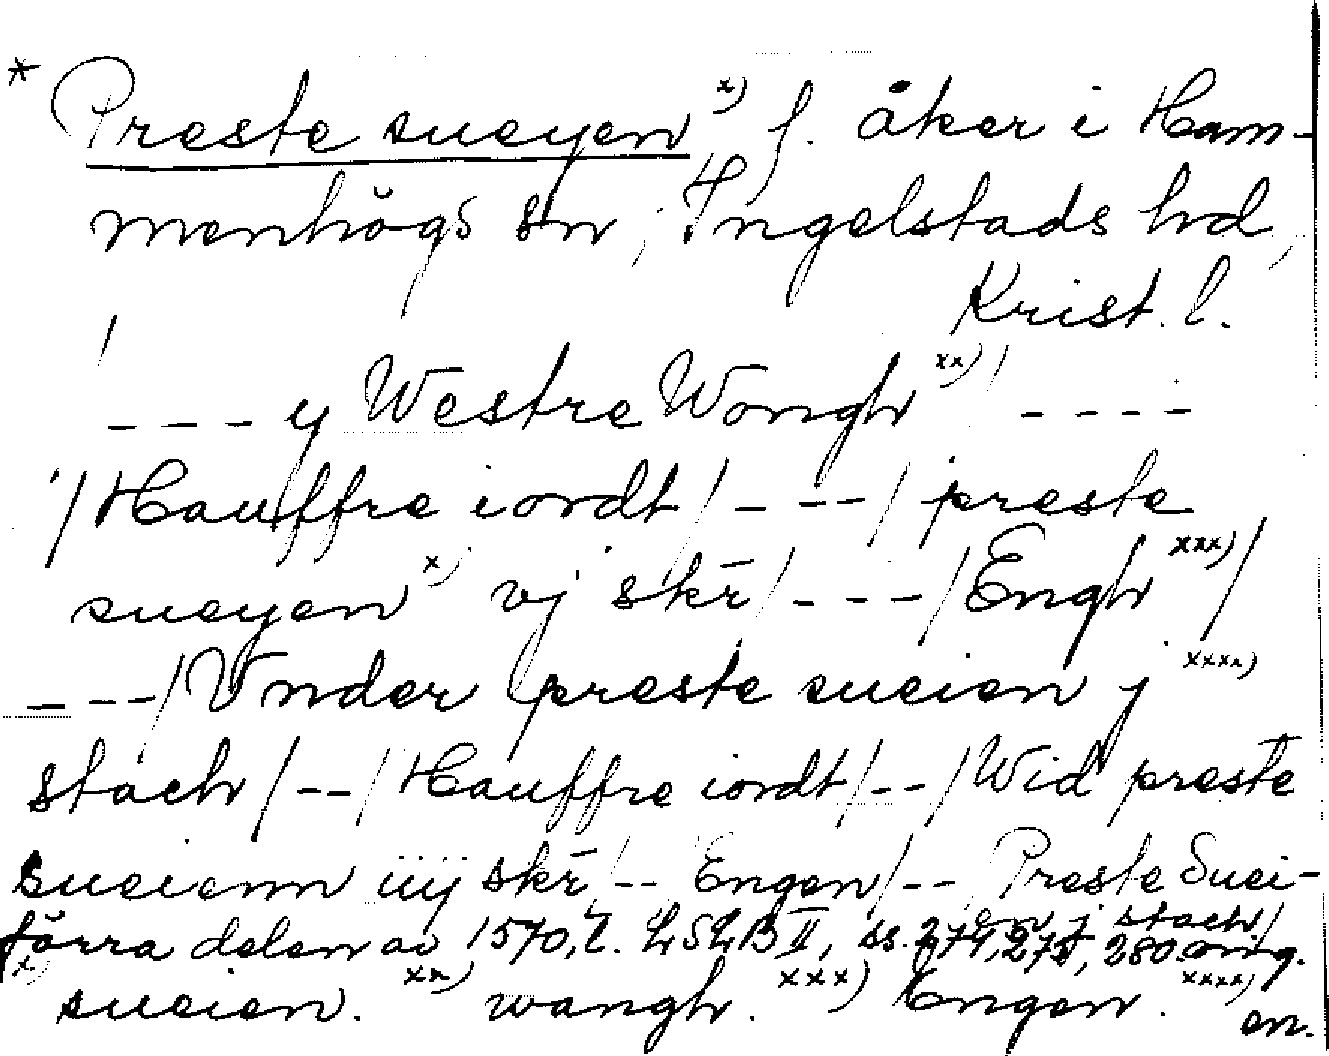 * Preste sueyen x) f. åker i Ham-
menhögs sn, Ingelstads hd,
Krist. l.
- - - y Westre Wongh xx) - - - -
/ Hauffre iordt / - - - / preste
sueyen x) vj skr̄ / - - - / Engh xxx) /
- - - / Vnder preste sueien j xxxx)
stach / - - / Hauffre iordt / - - / Wid preste
sueienn iiij skr̄ / - - Engen / - - Preste Suei-
en j stach /
förra delen av 1570,t. LSLB II, ss. 274, 275, 280. orig.
x) sueien. xx) wangh. xxx) Engen. xxxx) en.